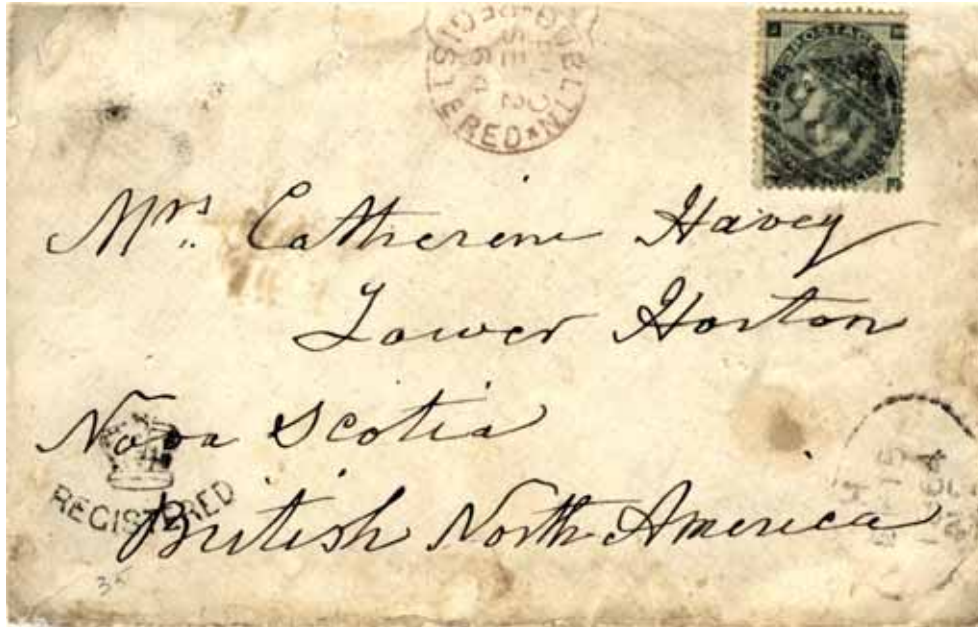 REGISTERED
SE
64
POSTAGE
Mrs. Catherine Havey
Lower Horton
Nova Scotia
REGISTERED
British North America